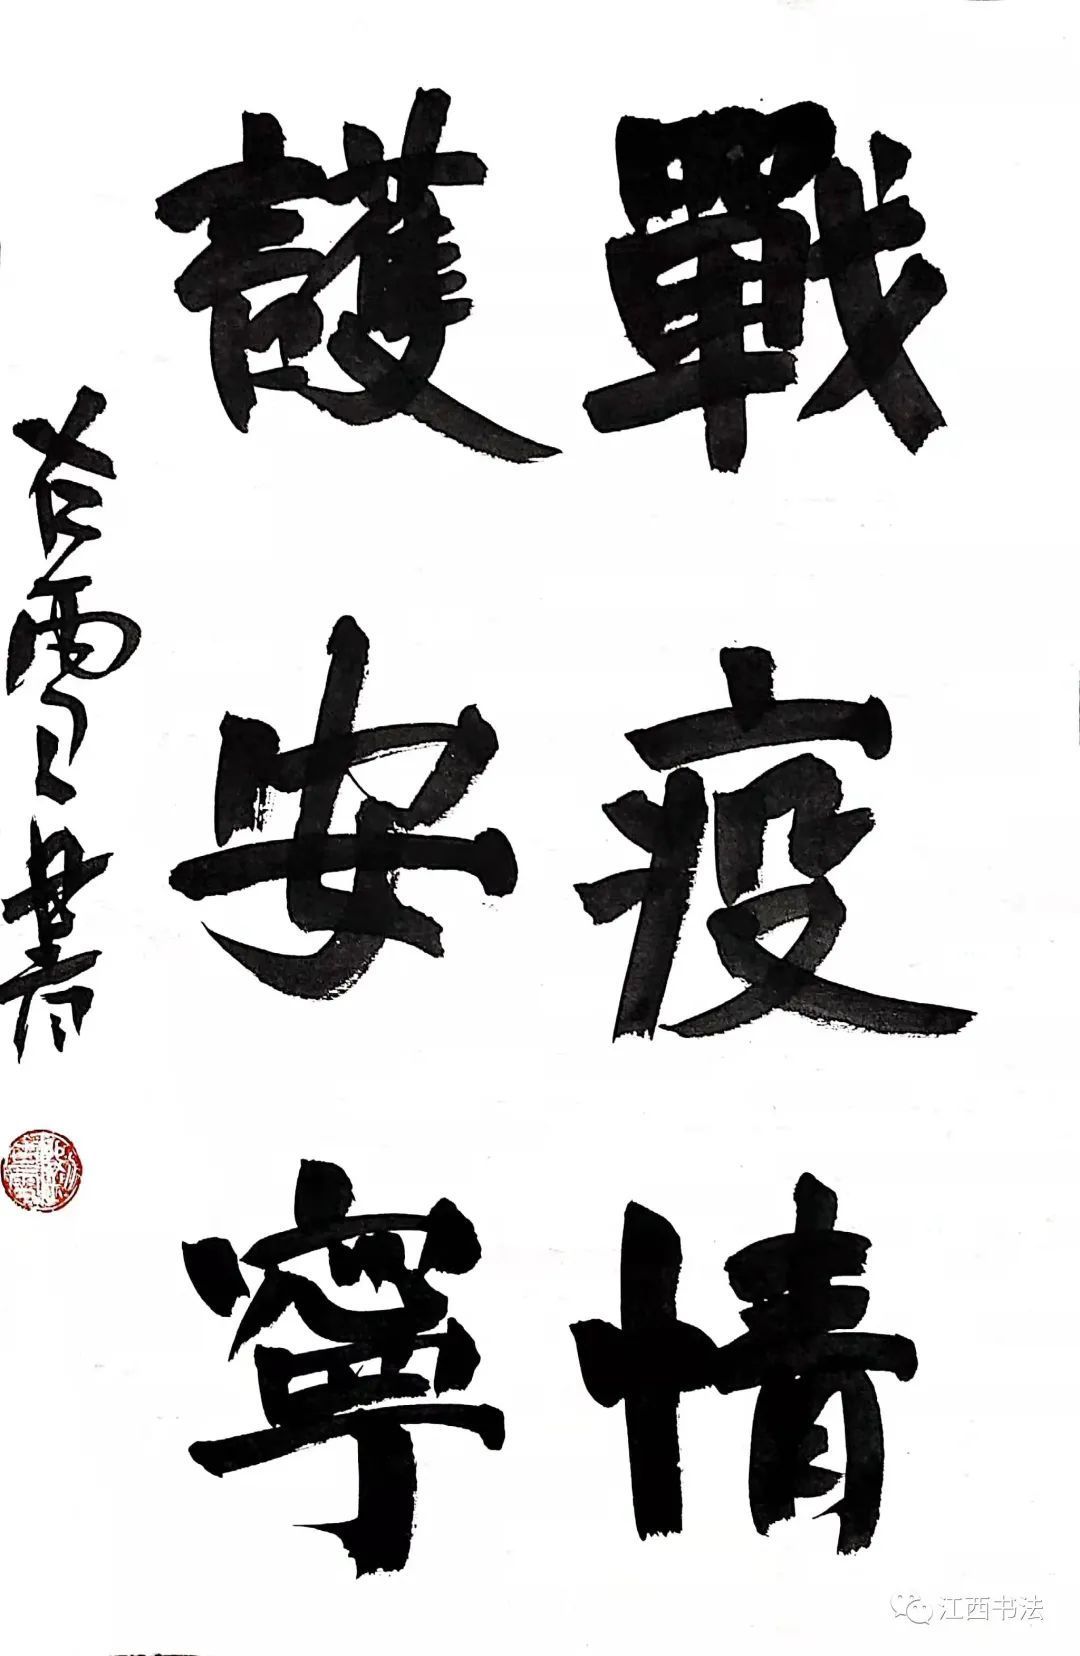 戰疫情
護安寧
谷雪書
江西书法